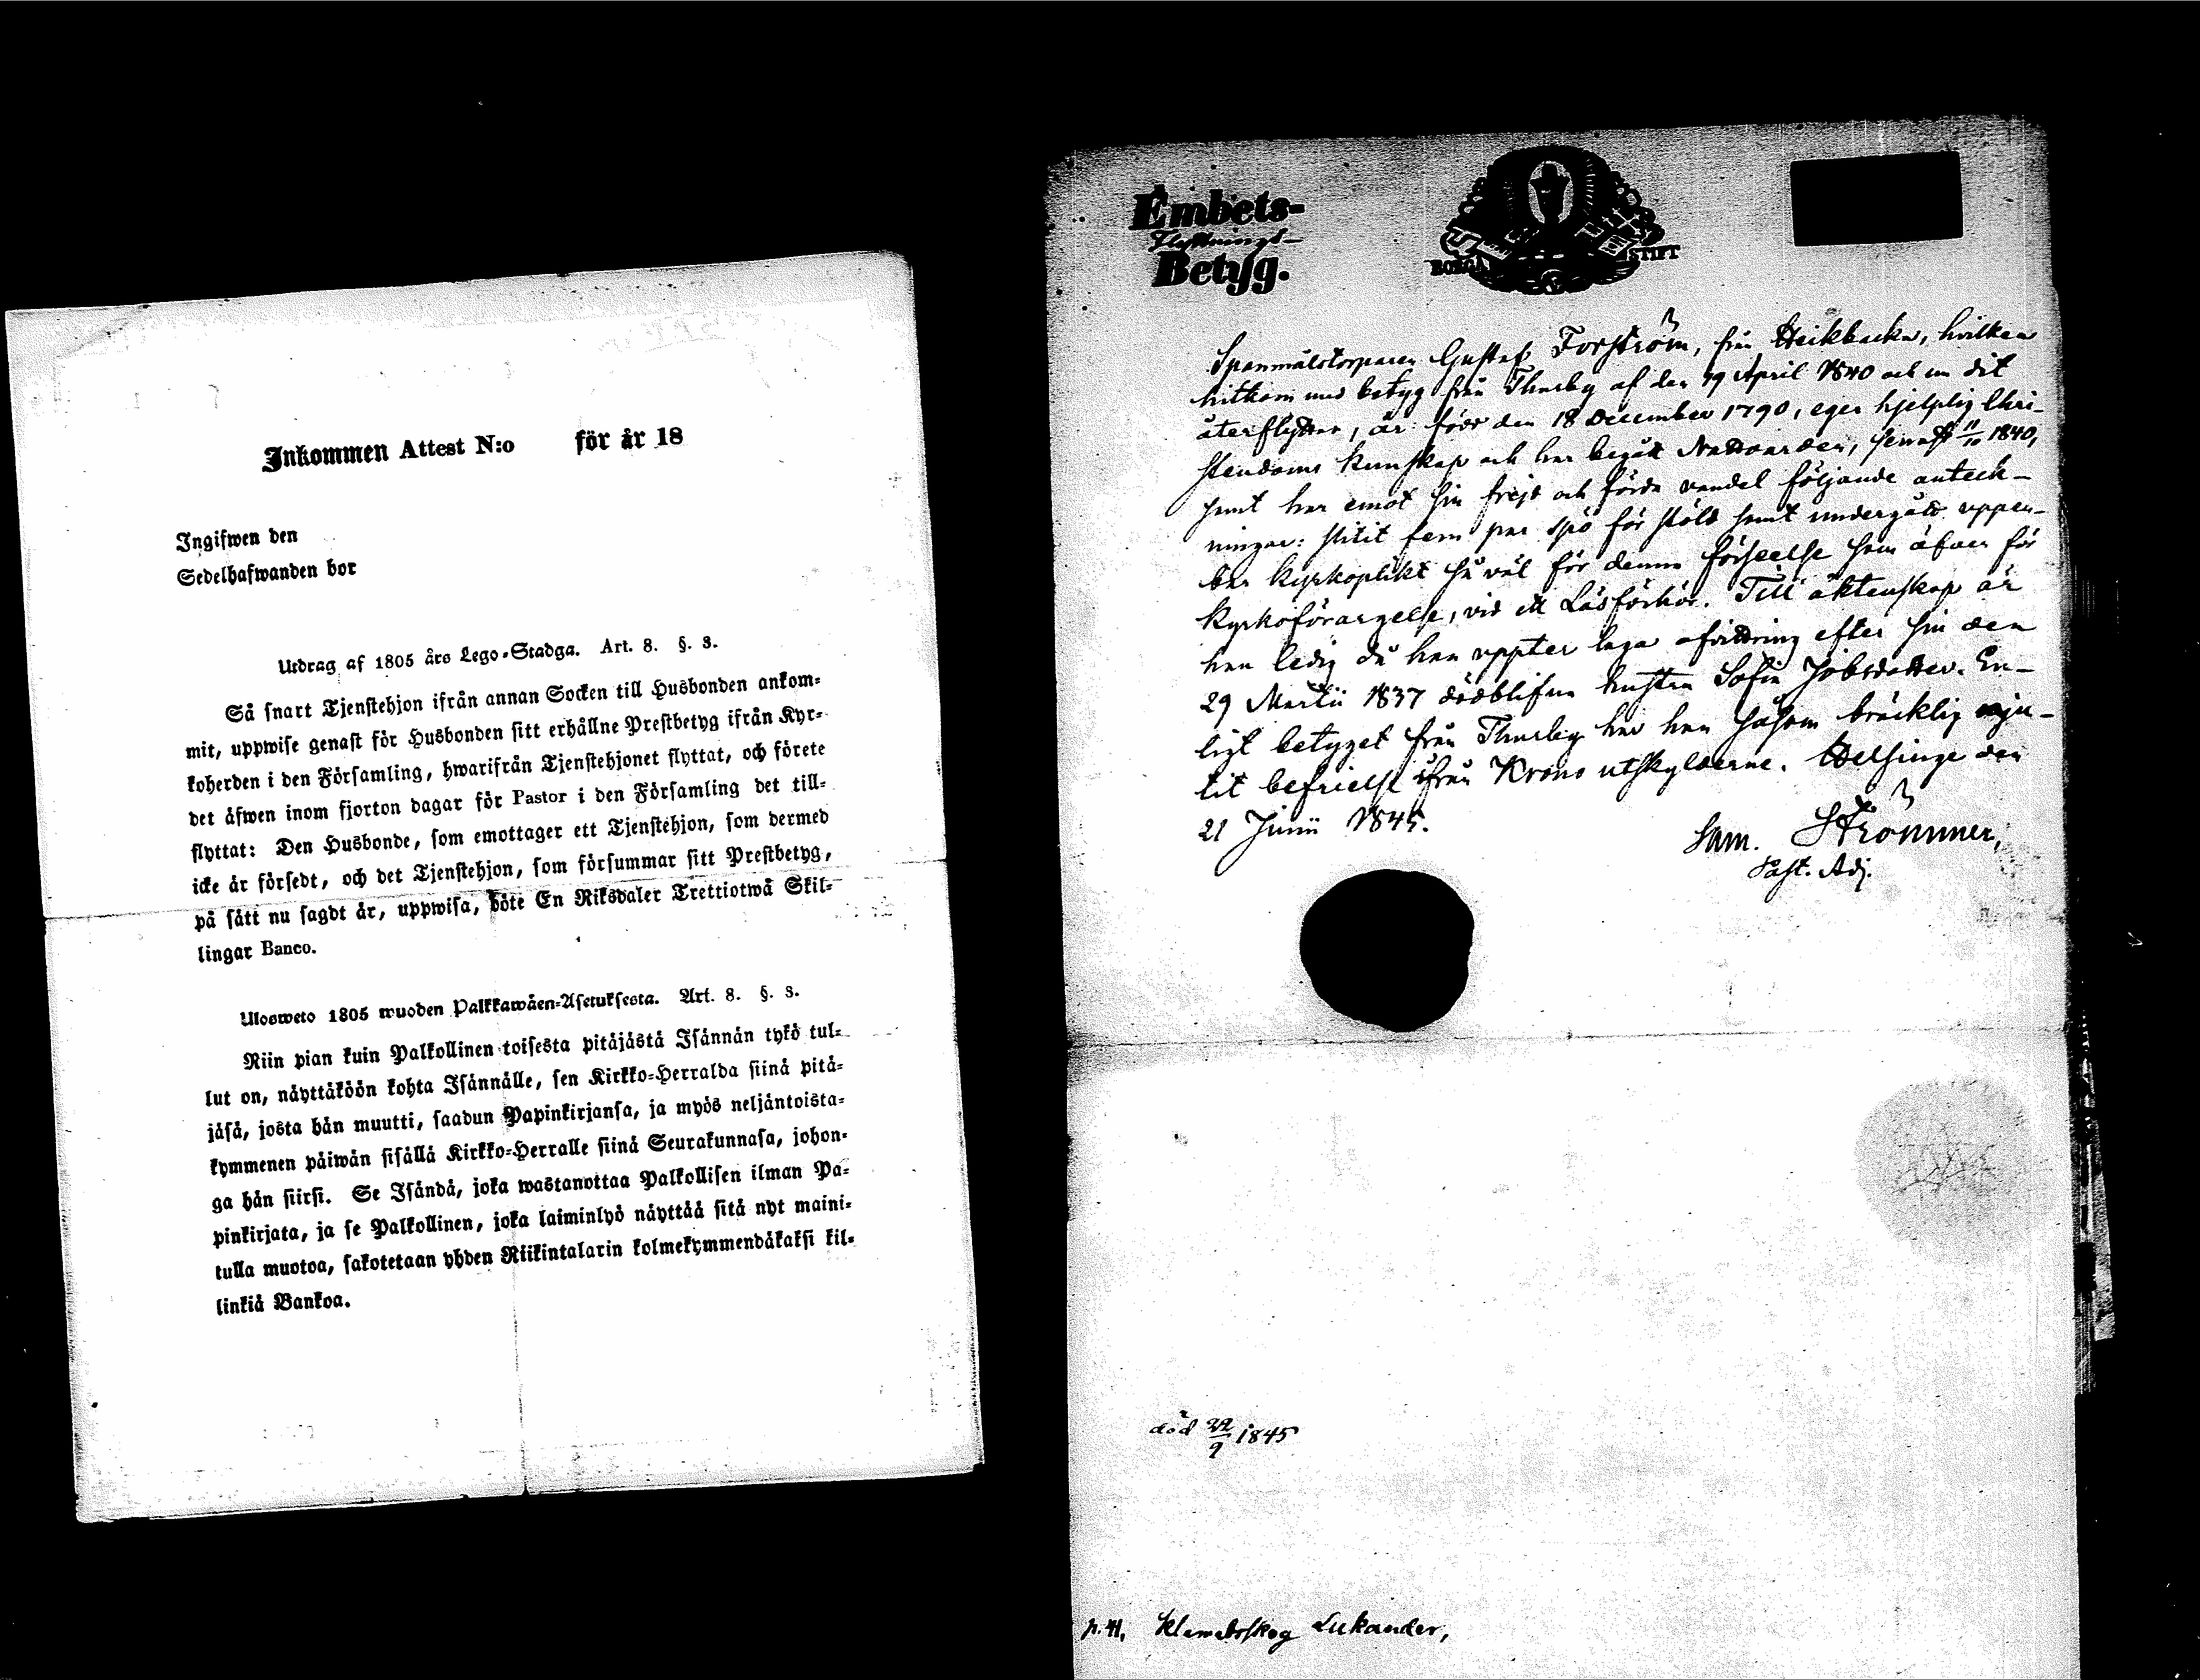 Inkommen Attest N:o för år 18
Ingifwen den
Sedelhafwanden bor
Utdrag af 1805 års Lego-Stadga. Art. 8. §. 3.
Så snart Tjenstehjon ifrån annan Socken till Husbonden ankom-
mit, uppwise genast för Husbonden sitt erhållne Prestbetyg ifrån Kyr-
koherden i den Församling, hwarifrån Tjenstehjonet flyttat, och förete
det äfwen inom fjorton dagar för Pastor i den Församling det till-
flyttat: Den Husbonde, som emottager ett Tjenstehjon, som dermed
icke är försedt, och det Tjenstehjon, som försummar sitt Prestbetyg,
på sätt nu sagdt är, uppwisa, böte En Riksdaler Trettiotwå Skil-
lingar Banco.
Ulosweto 1805 wuoden Palkkawäen-Asetuksesta. Art. 8. §. 3.
Niin pian kuin Palkollinen toisesta pitäjästä Isännän tykö tul-
lut on, näyttäköön kohta Isännälle, sen Kirkko-Herralda siinä pitä-
jäsä, josta hän muutti, saadun Papinkirjansa, ja myös neljäntoista-
kymmenen päiwän sisällä Kirkko-Herralle siinä Seurakunnasa, johon-
ga hän siirsi. Se Isändä, joka wastanottaa Palkollisen ilman Pa-
pinkirjata, ja se Palkollinen, joka laiminlyö näyttää sitä nyt maini-
tulla muotoa, sakotetaan yhden Riikintalarin kolmekymmendäkaksi kil-
linkiä Bankoa.
Embets-
Flyttnings-
Betyg.
BORGÅ STIFT
Spanmålstorparen Gustaf Forström, från Heikbacka, hvilken
hitkom med betyg från Thusby af den 19 April 1840 och nu dit
återflyttar, är född den 18 December 1790, eger hjelplig Chri-
stendoms kunskap och har begått Nattvarden, senast 11/10 1840,
samt har emot sin frejd och förda vandel följande anteck-
ningar: slitit fem par spö för stöld samt undergått uppen-
bar kyrkoplikt så väl för denna förseelse som äfven för
kyrkoförargelse, vid ett Läsförhör. Till äktenskap är
han ledig då han uppter laga afvittring efter sin den
29 Martii 1837 dödblifna hustru Sofia Jobsdotter. En-
ligt betyget från Thusby har han såsom bräcklig nju-
tit befrielse ifrån Krono utskylderne. Helsinge den
21 Junii 1845.
Sam. Strömmer,
Past. Adj.
död 22/9 1845
p. 41. Klemetskog Lukander,